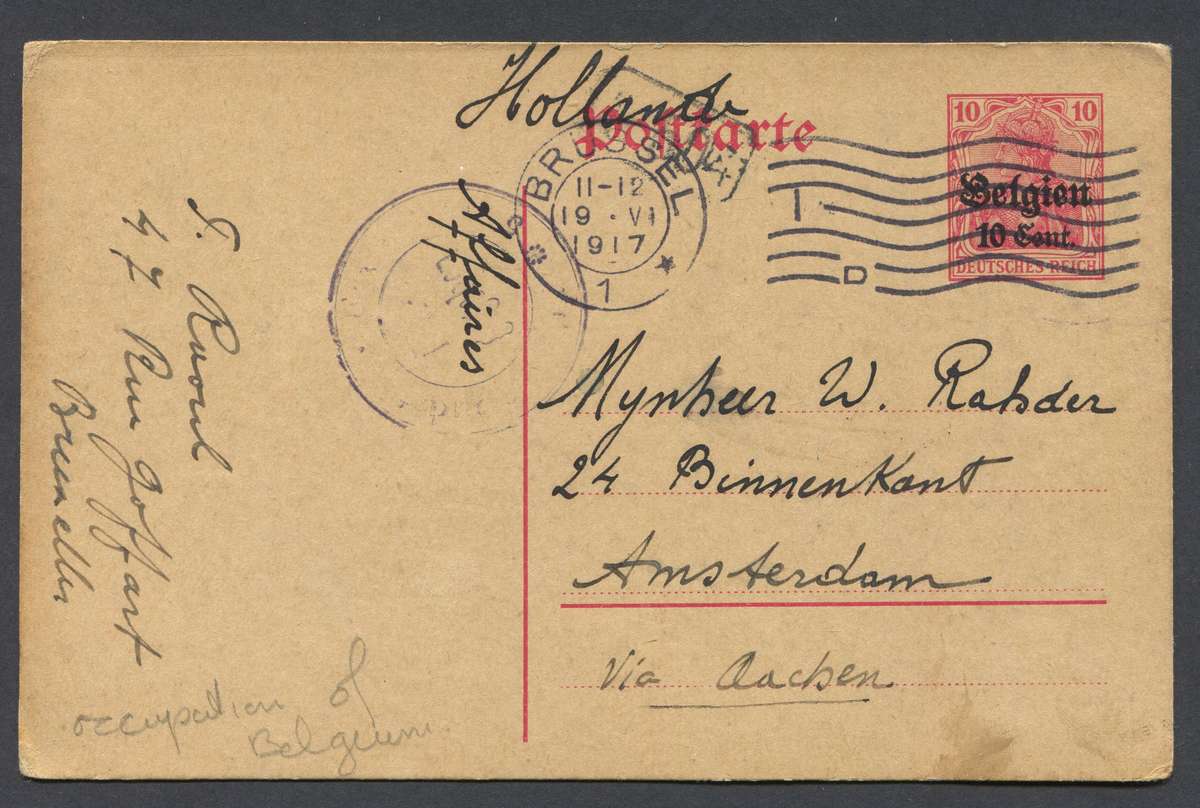 Hollande
Postkarte
10 10
Belgien
10 Cent.
DEUTSCHES REICH
BRÜSSEL
11-12
19.VI
1917
1
D
Affaires
Mynheer W. Rahder
24 Binnenkant
Amsterdam
Via Aachen
S. Raoul
77 Rue Joffart
Bruxelles
occupation of
Belgium.